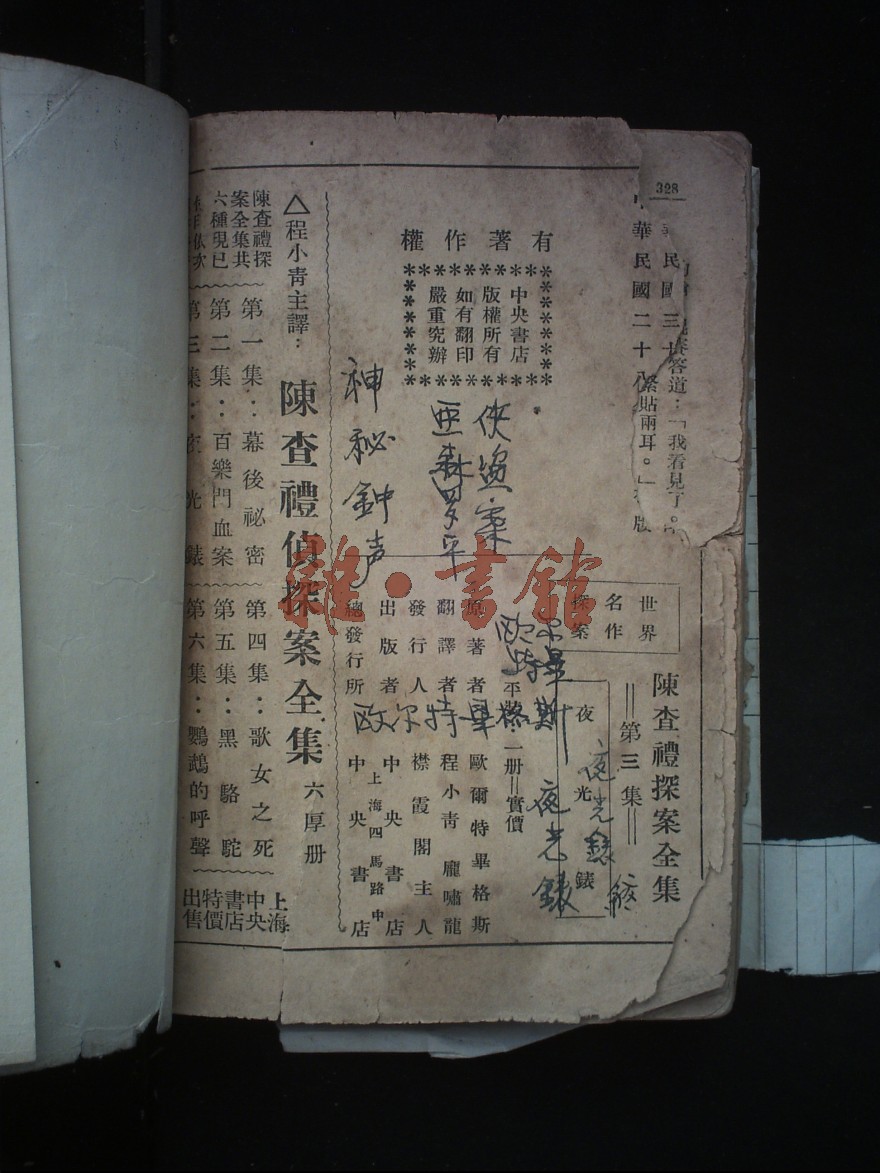 328
答道：「我看見了。
緊貼兩耳。」
華民國三十
華民國二十八
版
有著作權
中央書店
版權所有
如有翻印
嚴重究辦
俠盜案
亞森罗平
神秘鈡声
世界
名作
探案
陳查禮探案全集
第三集
夜光錶
夜光錶
夜光錶
平裝一册＝實價
原著者 歐爾特畢格斯
翻譯者 程小青 龐嘯龍
發行人 襟霞閣主人
出版者 中央書店
上海四馬路中
總發行所 中央書店
欧尔特畢格斯
△程小青主譯：
陳查禮偵探案全集 六厚册
陳查禮探
案全集共
六種現已
第一集：幕後祕密
第二集：百樂門血案
第三集：夜光錶
第四集：歌女之死
第五集：黑駱駝
第六集：鸚鵡的呼聲
上海
中央
書店
特價
出售
雜·書館